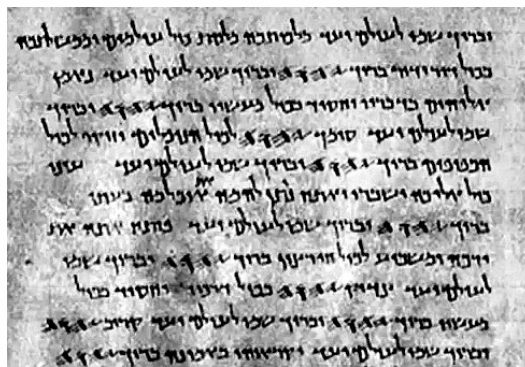 וברוך שמו לעולם ועד מלכותכה מלכות כול עולמים וממשלתכה
בכול דור ודור ברוך 𐤉𐤄𐤅𐤄 וברוך שמו לעולם ועד נאמן
אלוהים בדבריו וחסיד בכול מעשיו ברוך 𐤉𐤄𐤅𐤄 וברוך
שמו לעולם ועד סומך 𐤉𐤄𐤅𐤄 לכול הנופלים וזוקף לכול
הכפופים ברוך 𐤉𐤄𐤅𐤄 וברוך שמו לעולם ועד עיני
כול אליכה ישברו ואתה נותן להמה את אוכלמה בעתו
ברוך 𐤉𐤄𐤅𐤄 וברוך שמו לעולם ועד פותח אתה את
ידכה ומשביע לכול חי רצון ברוך 𐤉𐤄𐤅𐤄 וברוך שמו
לעולם ועד צדיק 𐤉𐤄𐤅𐤄 בכול דרכיו וחסיד בכול
מעשיו ברוך 𐤉𐤄𐤅𐤄 וברוך שמו לעולם ועד קרוב 𐤉𐤄𐤅𐤄
וברוך שמו לעולם ועד יקראוהו באמונה ברוך 𐤉𐤄𐤅𐤄